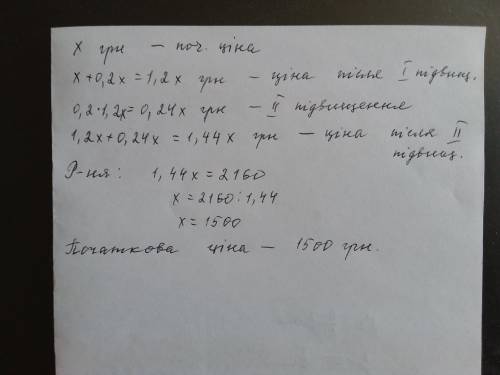 x грн – поч. ціна
x+0,2x=1,2x грн – ціна після I підвищ.
0,2·1,2x=0,24x грн – II підвищення
1,2x+0,24x=1,44x грн – ціна після II
підвищ.
Р-ня: 1,44x=2160
x=2160:1,44
x=1500
Початкова ціна – 1500 грн.